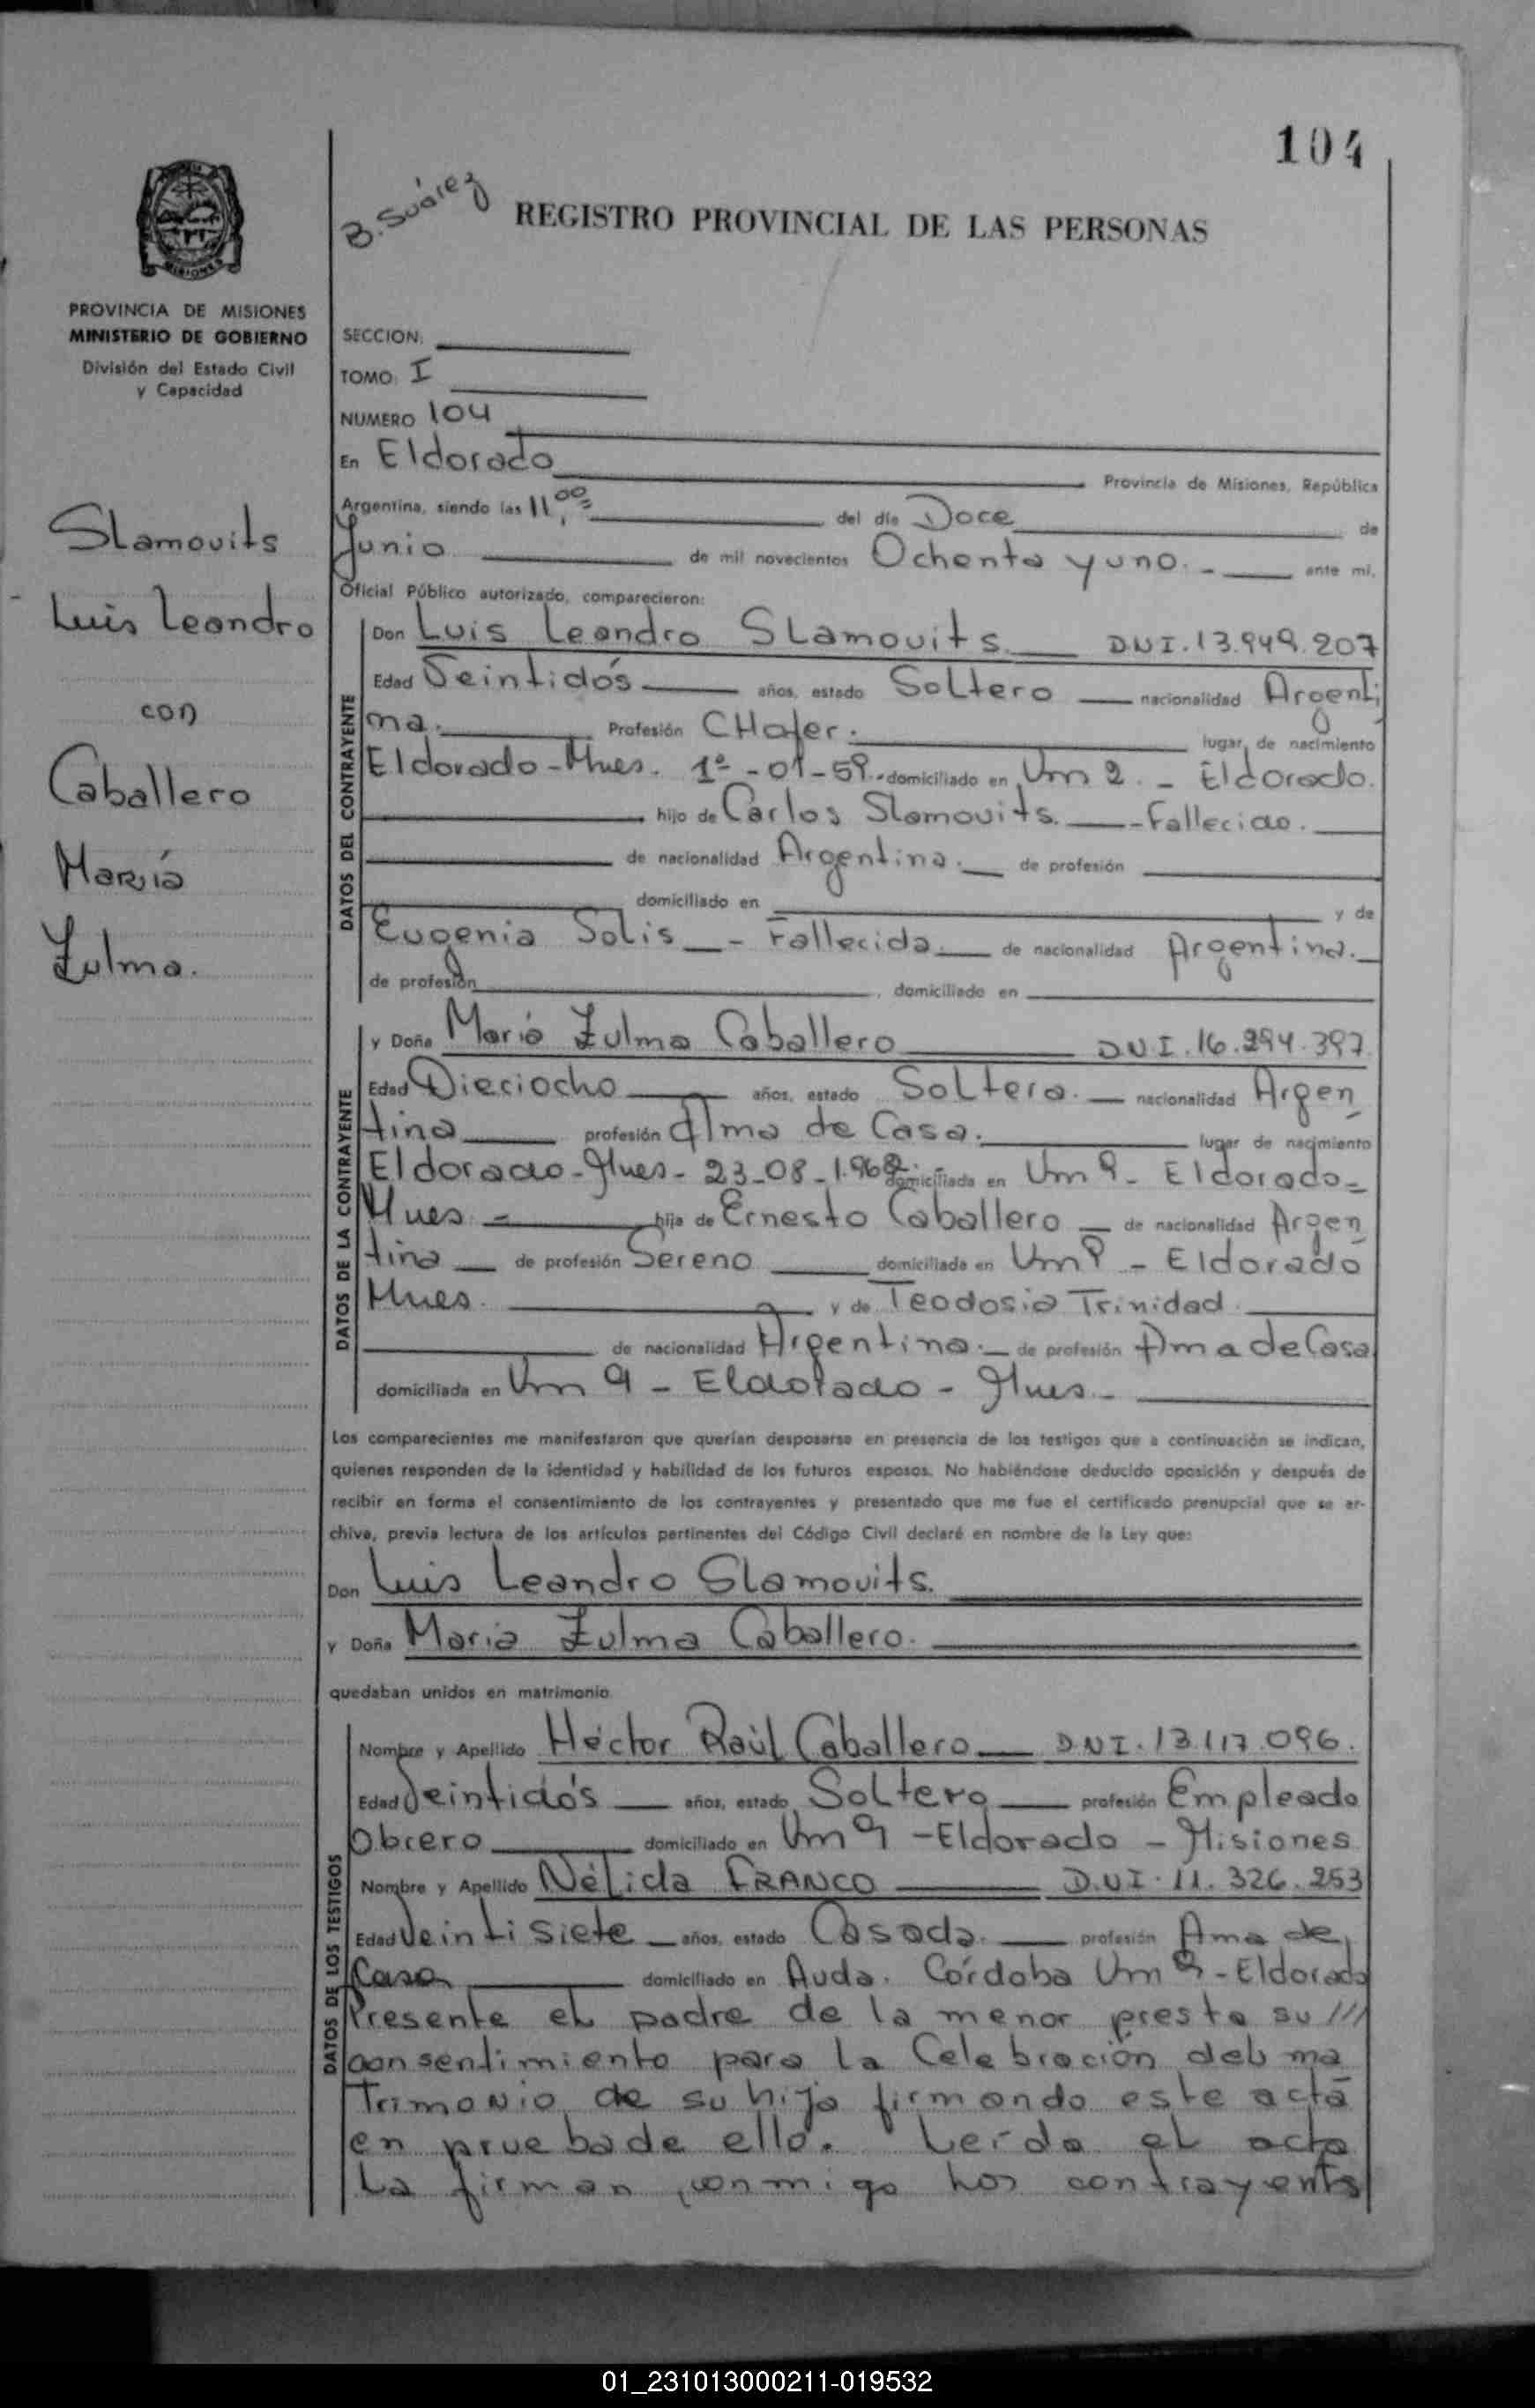 104
B. Suárez
REGISTRO PROVINCIAL DE LAS PERSONAS
MISIONES
PROVINCIA DE MISIONES
MINISTERIO DE GOBIERNO
División del Estado Civil
y Capacidad
Slamovits
Luis Leandro
con
Caballero
María
Zulma.
SECCION:
TOMO: I
NUMERO 104
En Eldorado Provincia de Misiones, República
Argentina, siendo las 11,00 del día Doce de
Junio de mil novecientos Ochenta y uno. - ante mí,
Oficial Público autorizado, comparecieron:
DATOS DEL CONTRAYENTE
Don Luis Leandro Slamovits. DNI. 13.949.207
Edad Veintidós años, estado Soltero nacionalidad Argenti
na. Profesión CHofer. lugar de nacimiento
Eldorado - Mnes. 1º - 01 - 59. domiciliado en Km 2. - Eldorado.
hijo de Carlos Slamovits. - Fallecido.
de nacionalidad Argentina. de profesión
domiciliado en y de
Eugenia Solis - Fallecida de nacionalidad Argentina.
de profesión , domiciliado en
DATOS DE LA CONTRAYENTE
y Doña María Zulma Caballero DNI. 16.294.397
Edad Dieciocho años, estado Soltera. nacionalidad Argen
tina profesión Ama de Casa. lugar de nacimiento
Eldorado - Mnes - 23 - 08 - 1.962 domiciliada en Km 9 - Eldorado -
Mnes - hija de Ernesto Caballero de nacionalidad Argen
tina de profesión Sereno domiciliada en Km 9 - Eldorado
Mnes. y de Teodosia Trinidad
de nacionalidad Argentina. de profesión Ama de Casa
domiciliada en Km 9 - Eldorado - Mnes -
Los comparecientes me manifestaron que querían desposarse en presencia de los testigos que a continuación se indican,
quienes responden de la identidad y habilidad de los futuros esposos. No habiéndose deducido oposición y después de
recibir en forma el consentimiento de los contrayentes y presentado que me fue el certificado prenupcial que se ar-
chiva, previa lectura de los artículos pertinentes del Código Civil declaré en nombre de la Ley que:
Don Luis Leandro Slamovits.
y Doña María Zulma Caballero.
quedaban unidos en matrimonio.
DATOS DE LOS TESTIGOS
Nombre y Apellido Héctor Raúl Caballero DNI. 13.117.096.
Edad Veintidós años, estado Soltero profesión Empleado
Obrero domiciliado en Km 9 - Eldorado - Misiones
Nombre y Apellido Nélida FRANCO D.N.I. 11.326.253
Edad Veintisiete años, estado Casada. profesión Ama de
Casa domiciliado en Avda. Córdoba Km 9 - Eldorado
Presente el padre de la menor presta su ///
consentimiento para la Celebración del ma
trimonio de su hija firmando este acta
en prueba de ello. Leída el acta
la firman conmigo los contrayents
01_231013000211-019532